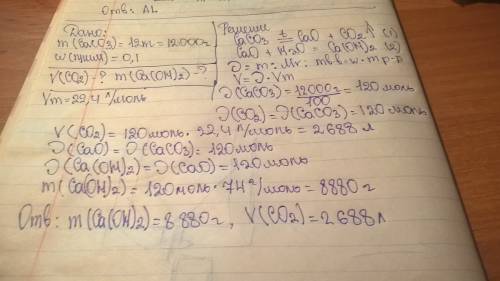 Отв: AL
Дано:
m(CaCO3)=12т=12000г
w(прим)=0,1
V(CO2)-? m(Ca(OH)2)-?
Vm=22,4 л/моль
Решение
CaCO3 t= CaO + CO2↑ (1)
CaO + H2O = Ca(OH)2 (2)
V=ϑ·Vm
ϑ(CaCO3)=12000г/100=120 моль
ϑ(CO2)=ϑ(CaCO3)=120 моль
V(CO2)=120 моль·22,4 л/моль=2688 л
ϑ(CaO)=ϑ(CaCO3)=120 моль
ϑ(Ca(OH)2)=ϑ(CaO)=120 моль
m(Ca(OH)2)=120 моль·74 г/моль=8880 г
Отв: m(Ca(OH)2)=8880г, V(CO2)=2688л